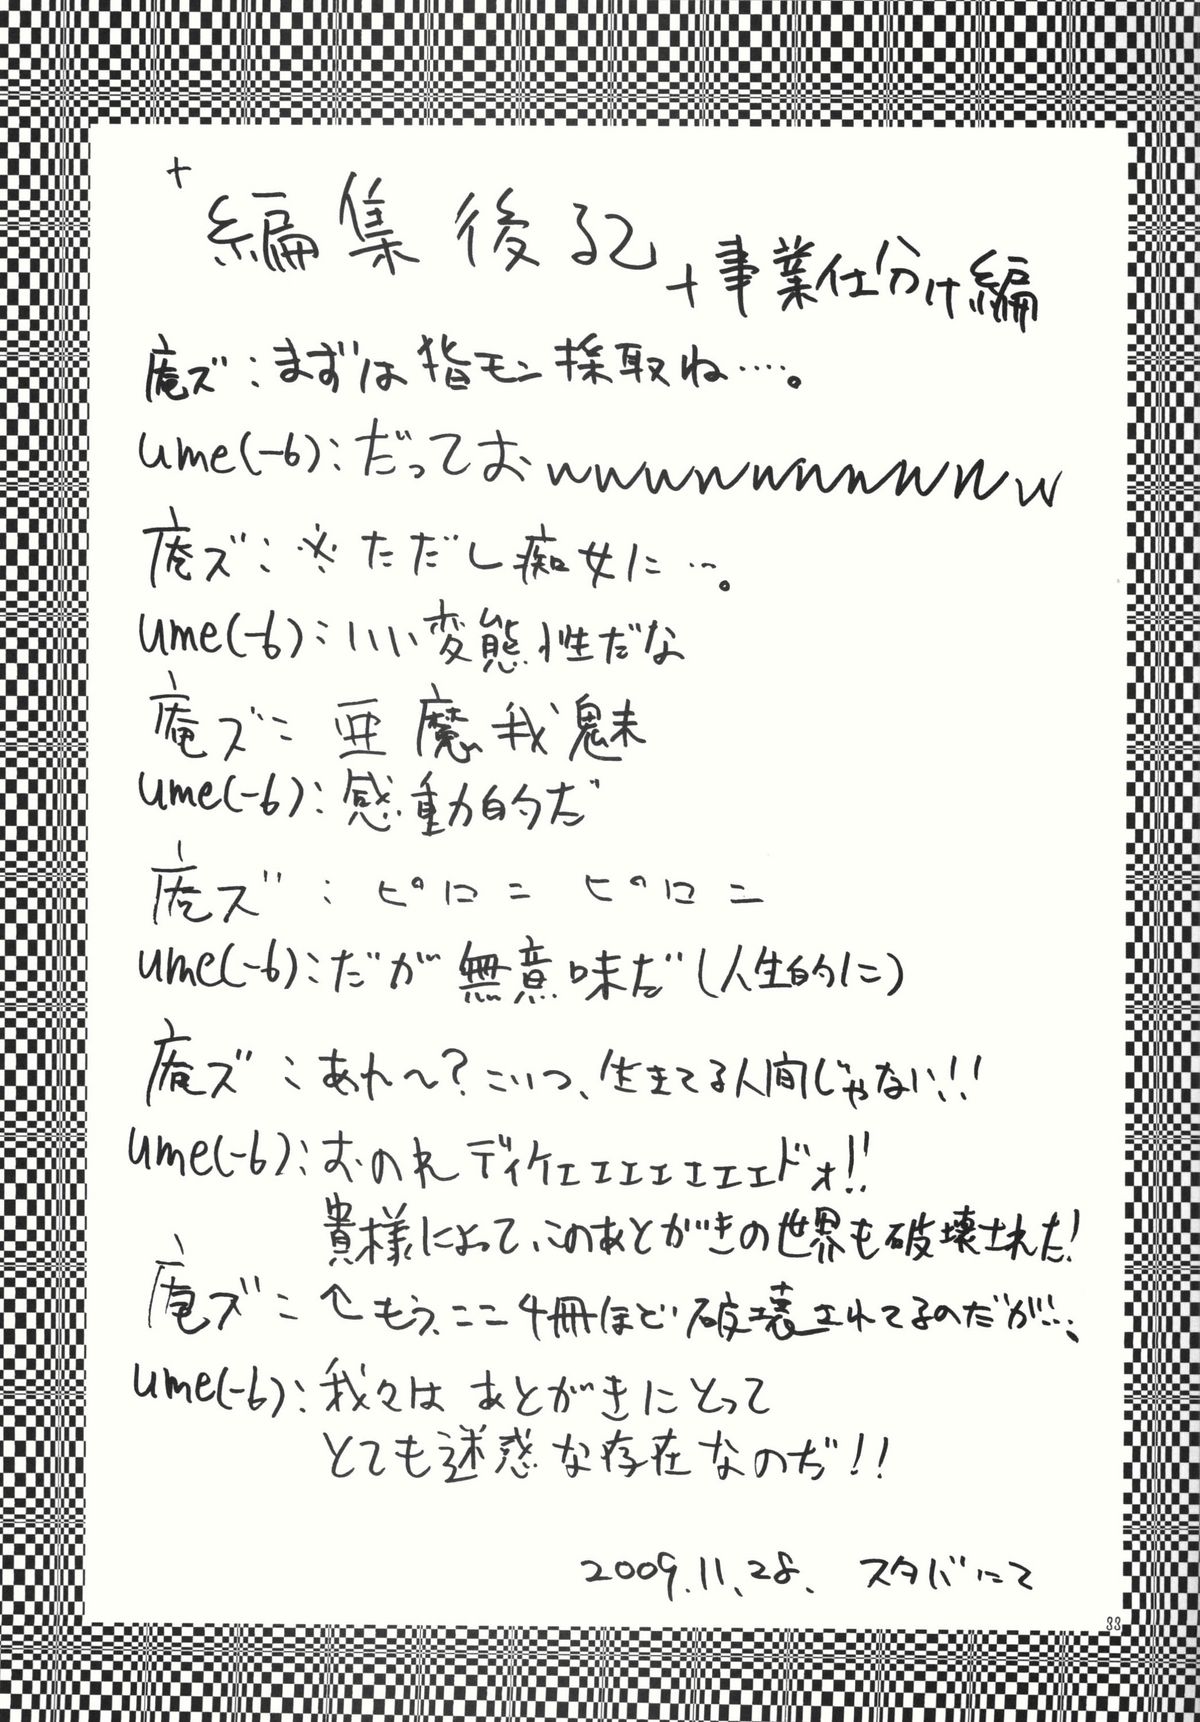 +
編集後記
+事業仕分け編
庵ズ：まずは指モン採取ね‥‥。
ume(-6)：だっておwwwwwwwwwwww
庵ズ：※ただし痴女に…。
ume(-6)：いい変態性だな
庵ズ：亜魔我魅
ume(-6)：感動的だ
庵ズ：ピロニ ピロニ
ume(-6)：だが無意味だ(人生的に)
庵ズ：あれ～？こいつ、生きてる人間じゃない!!
ume(-6)：おのれディケェェェェェェェドォ!!
貴様によって、このあとがきの世界も破壊された！
庵ズ：↑もう、ここ4冊ほど破壊されてるのだが…。
ume(-6)：我々はあとがきにとって
とても迷惑な存在なのだ!!
2009.11.28. スタバにて
33